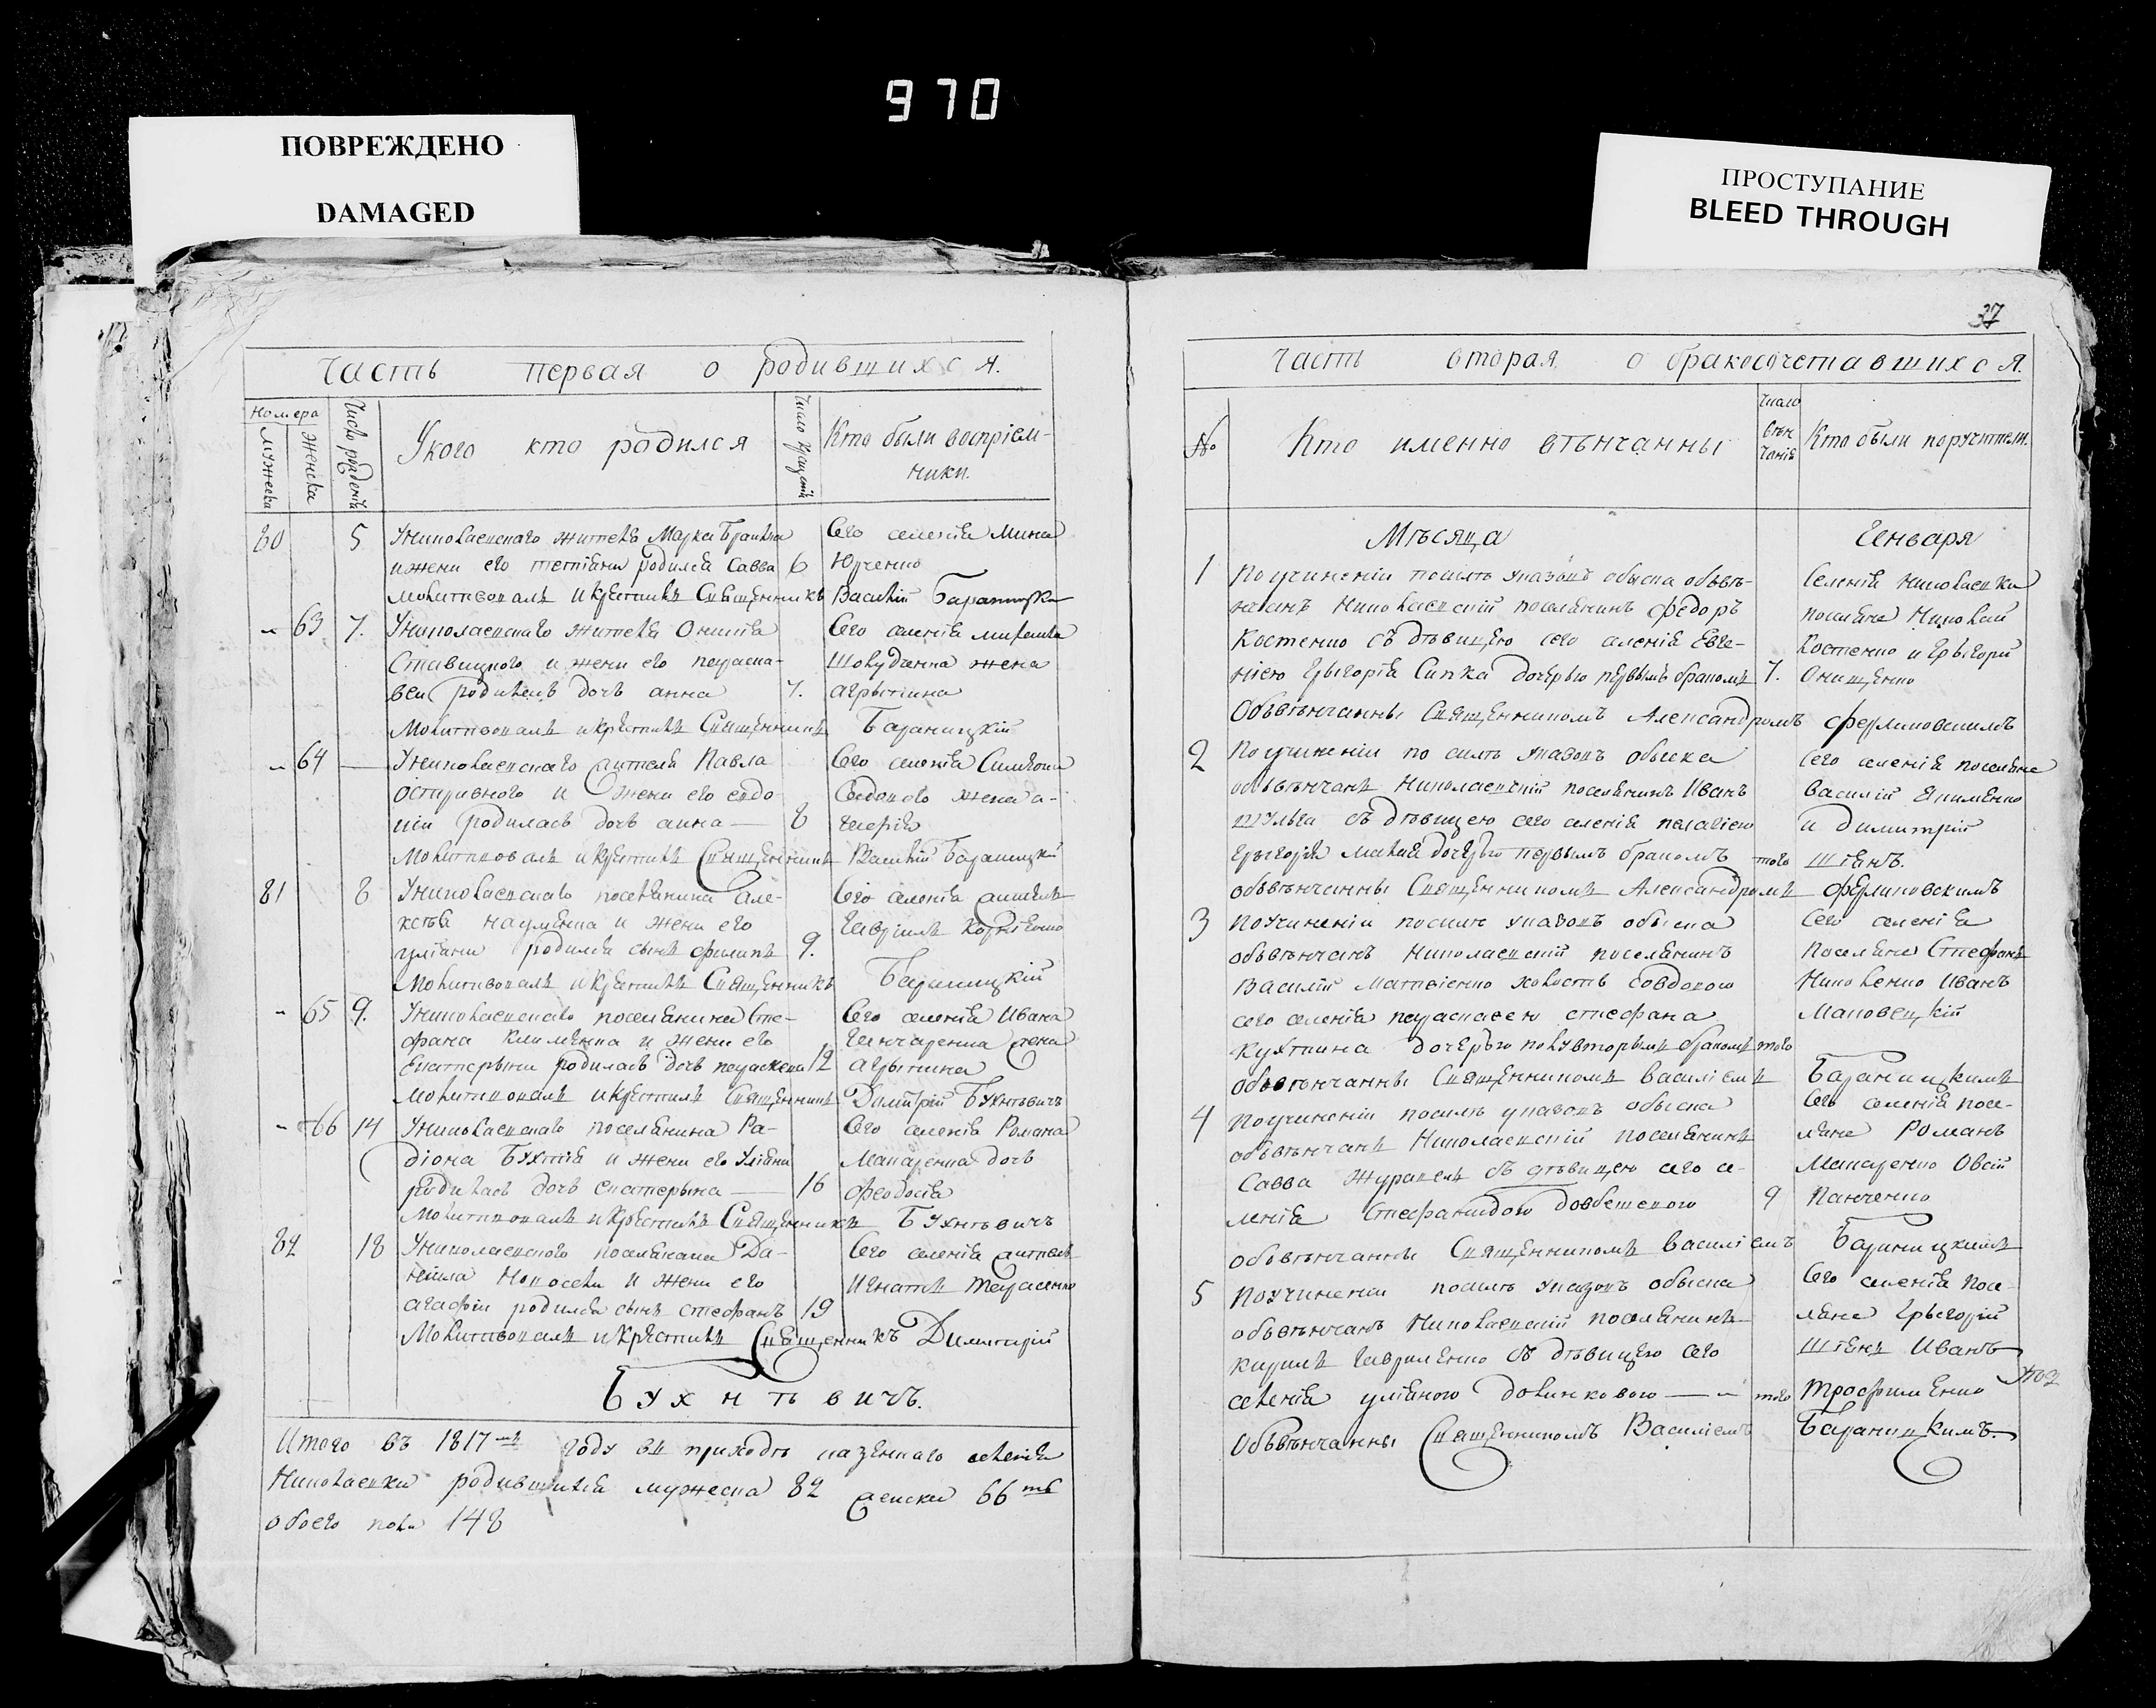 970
ПОВРЕЖДЕНО
DAMAGED
ПРОСТУПАНИЕ
BLEED THROUGH
Часть первая о родившихся.
Номера
Мужеска
Женска
Число рождения
У кого кто родился
Число крещения
Кто были воспріем-
ники.
80 5 У николаевскаго жителя Марка
и жени его тетіяни родился Савва 6
молитвовалъ и крестилъ Священникъ
Сего селенія Мина
Юрченко
Василій Бараницкій
63 7. У николаевскаго жителя Онисія
Ставицкого и жени его параски-
веи родилась дочь анна 7.
Молитвовалъ и крестилъ Священникъ
Сего селенія
жена
агрыпина
Бараницкій
64 У николаевскаго жителя Павла
остривного и жени его евдо-
кіи родилась дочь анна 8
Молитвовалъ и крестилъ Священникъ
Сего селенія Симеона
жена а-
Василій Бараницкій
81 8 У николаевскаго поселянина але-
ксѣя науменка и жени его
уліяни родился сынъ филипъ 9.
Молитвовалъ и крестилъ Священникъ
Сего селенія житель
Гавріилъ Корніенко
Бараницкій
65 9. У николаевскаго поселянина Сте-
фана клименка и жени его
Екатерыны родилась дочь параскева 12
Молитвовалъ и крестилъ Священникъ
Сего селенія Ивана
Гончаренка жена
агрыпина
Димитрій Бухнѣвичъ
66 14 У николаевскаго поселянина Ра-
діона Бухтія и жени его Уліяни
родилась дочь екатерына 16
Молитвовалъ и крестилъ Священникъ
Сего селенія Романа
Макаренка дочь
феодосія
Бухнѣвичъ
82 18 У николаевского поселянина Да-
ніила и жени его
агафіи родился сынъ стефанъ 19
Молитвовалъ и крестилъ Священникъ
Сего селенія житель
Игнатъ Тарасенко
Димитрій
Бухнѣвичъ.
Итого въ 1817мъ году въ приходѣ казеннаго селенія
Николаевки родившихся мужеска 82 женска 66ть
обоего пола 148
37
Часть вторая о бракосочетавшихся.
№
Кто именно вѣнчанны
Число
вѣн
чанія
Кто были поручители.
Мѣсяца Генваря
1 По учиненіи по силѣ указовъ обыска обвѣ-
нчанъ Николаевскій поселянинъ федоръ
Костенко съ дѣвицею сего селенія Евге-
ніею грыгорія Сипка дочерью первымъ бракомъ 7.
Обвѣнчанны Священникомъ Александромъ
Селенія николаевки
поселяне Николай
Костенко и грыгорій
Онищенко
фермиковскимъ
2 По учиненіи по силѣ указовъ обыска
обвѣнчанъ Николаевскій поселянинъ Иванъ
Шульга съ дѣвицею сего селенія пелагіею
грыгорія дочерью первымъ бракомъ того
обвѣнчанны Священникомъ Александромъ
Сего селенія поселяне
Василій Якименко
и димитрій
Штенъ.
фермиковскимъ
3 По учиненіи по силѣ указовъ обыска
обвѣнчанъ Николаевскій поселянинъ
Василій Матвіенко холостъ совдовою
сего селенія параскевею стефана
Кухтина дочерью полувторымъ бракомъ того
обвѣнчанны Священникомъ Василіемъ
Сего селенія
Поселяне Стефанъ
Николенко Иванъ
Маловецкій
Бараницкимъ
4 По учиненіи по силѣ указовъ обыска
обвѣнчанъ Николаевскій поселянинъ
Савва Журавель съ дѣвицею сего се-
ленія Стефанидою довбешкою 9
обвѣнчанны Священникомъ Василіемъ
Сего селенія посе-
ляне Романъ
Макаренко Овсій
Панченко
Бараницкимъ
5 По учиненіи по силѣ указовъ обыска
обвѣнчанъ Николаевскій поселянинъ
Кирилъ Гавриленко съ дѣвицею сего
селенія уліяною того
Обвѣнчанны Священникомъ Василіемъ
Сего селенія посе-
ляне грыгорій
Штенъ Иванъ
Трофименко
Бараницкимъ.